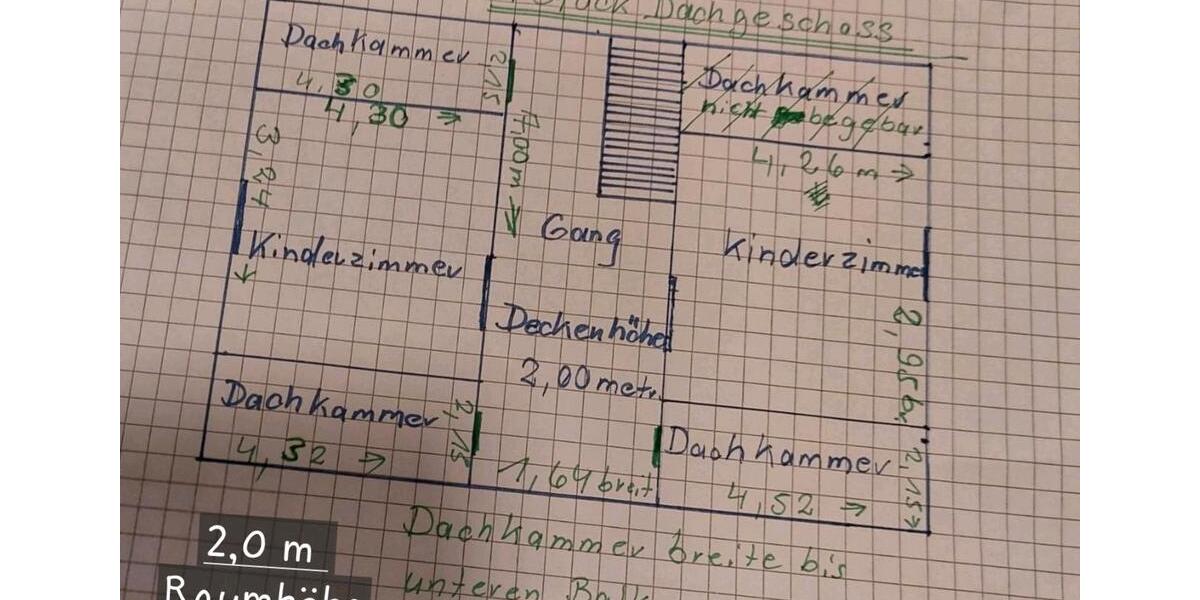 Dachgeschoss
Dachkammer
2,15
4,30
4,30 →
3,24
7,00m →
Dachkammer
nicht begehbar
4,26 m →
Gang
Kinderzimmer
Kinderzimmer
Deckenhöhe
2,00 metr.
2,95 br
Dachkammer
4,32 →
2,15
1,64 breit
Dachkammer
4,52 →
2,15 →
Dachkammer breite bis
unteren
2,0 m
Raumhöhe